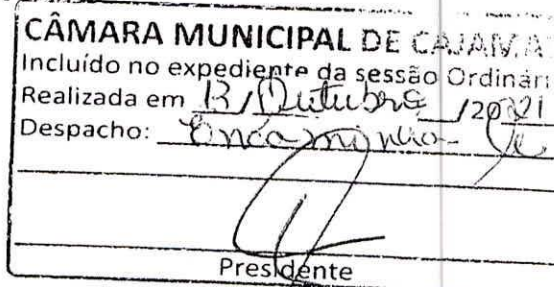 CÂMARA MUNICIPAL DE CAJAMA
Incluído no expediente da sessão Ordinári
Realizada em 13/Outubro/2021
Despacho: Encaminha-se
Presidente